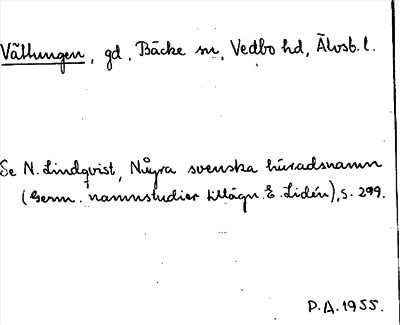 Vättungen, gd, Bäcke sn, Vedbo hd, Älvsb. l.
Se N. Lindqvist, Några svenska häradsnamn
(Germ. namnstudier tillägn. E. Lidén), s. 299.
P.A. 1955.